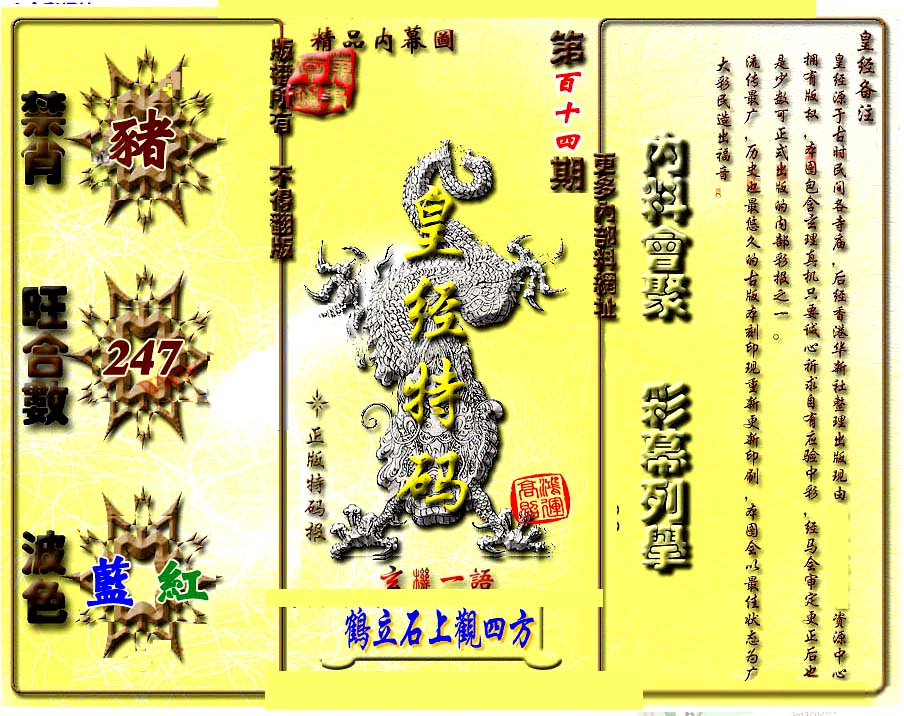 皇经备注
皇经源于古时民间各寺庙，后经香港华新社整理出版现由
资源中心
拥有版权，本图包含玄理真机只要诚心祈求自有应验中彩，经马会审定更正后也
是少数可正式出版的内部彩报之一。
流传最广，历史也最悠久的古版本刻印现重新更新印刷，本图会以最佳状态为广
大彩民造出福音
内料會聚
彩幕列舉
更多內部料網址
第百十四期
精品内幕圖
版權所有 不得翻版
皇经特码
正版特码报
鴻運
高照
玄機一語
鶴立石上觀四方
禁肖
豬
旺合數
247
波色
藍 紅